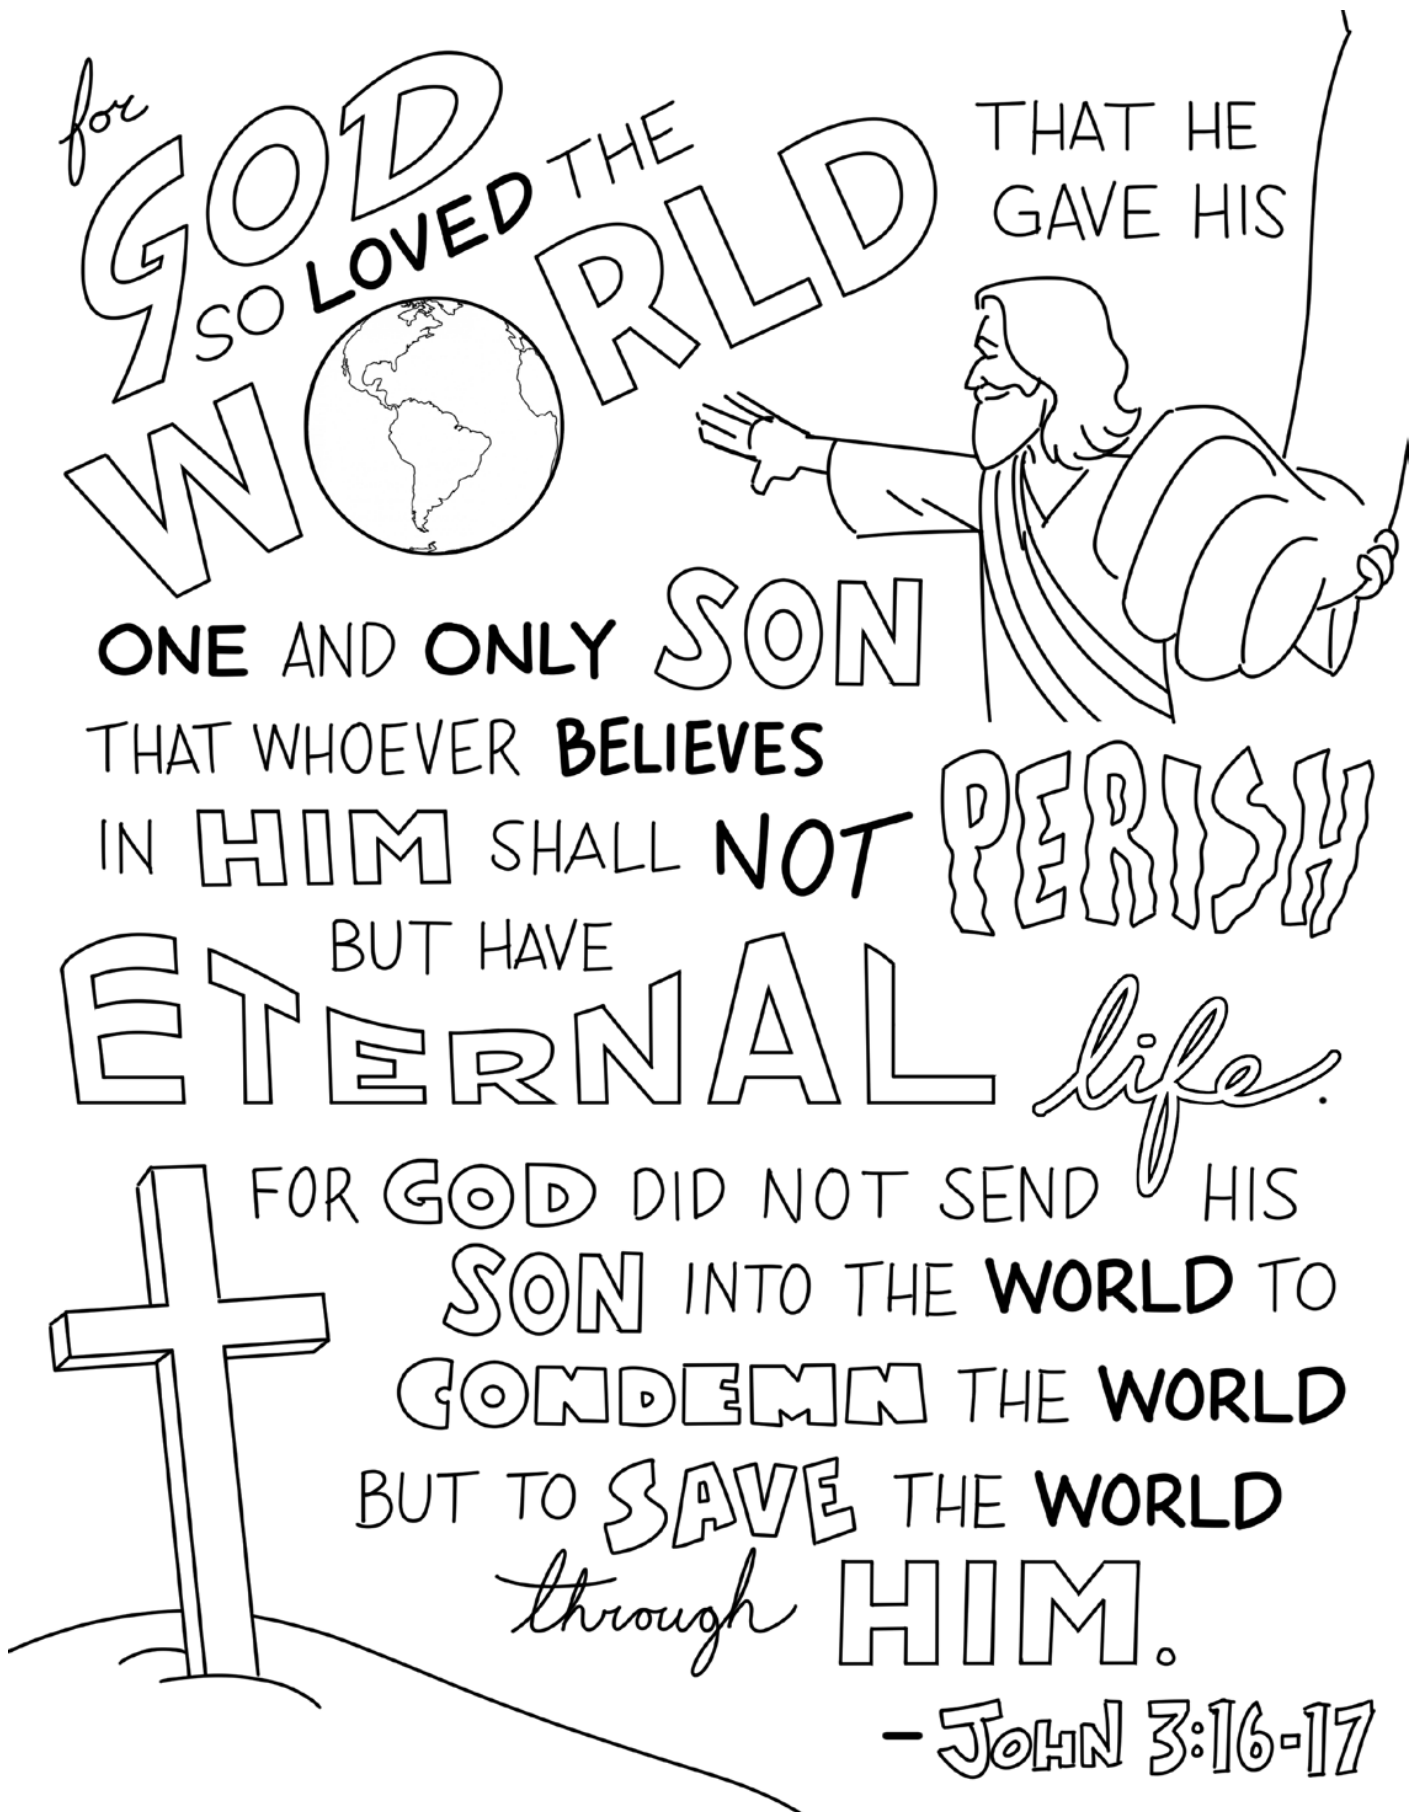 for
GOD
SO LOVED THE
WORLD
THAT HE
GAVE HIS
ONE AND ONLY SON
THAT WHOEVER BELIEVES
IN HIM SHALL NOT PERISH
BUT HAVE
ETERNAL life.
FOR GOD DID NOT SEND HIS
SON INTO THE WORLD TO
CONDEMN THE WORLD
BUT TO SAVE THE WORLD
through HIM.
– JOHN 3:16-17